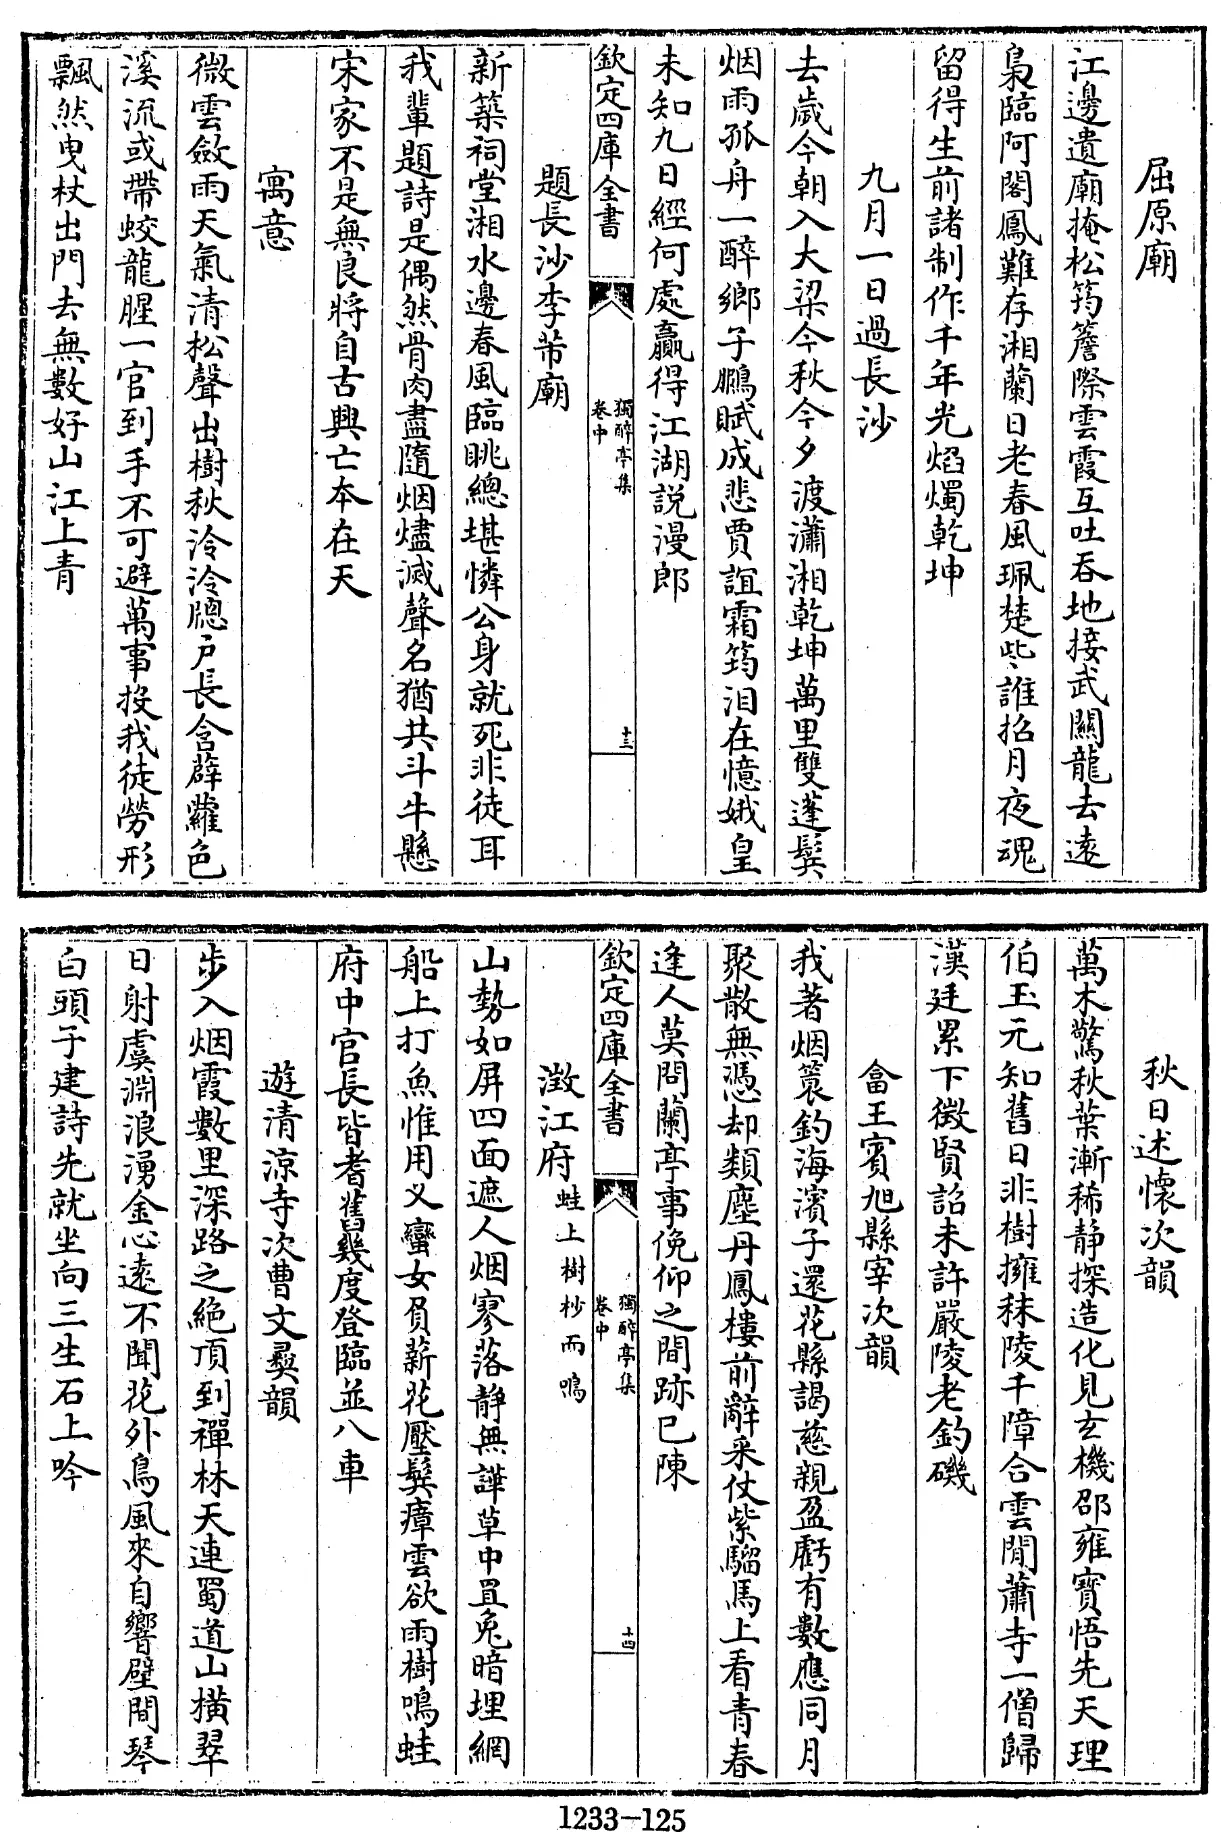 屈原廟
江邊遺廟掩松筠簷際雲霞互吐吞地接武關龍去遠
梟臨阿閣鳳難存湘蘭日老春風珮楚些誰招月夜魂
留得生前諸制作千年光焰燭乾坤
九月一日過長沙
去歲今朝入大梁今秋今夕渡瀟湘乾坤萬里雙蓬鬢
烟雨孤舟一醉鄉子鵩賦成悲賈誼霜筠泪在憶娥皇
未知九日經何處贏得江湖説漫郎
欽定四庫全書
獨醉亭集
卷中
十三
題長沙李芾廟
新築祠堂湘水邊春風臨眺總堪憐公身就死非徒耳
我輩題詩是偶然骨肉盡隨烟燼滅聲名猶共斗牛懸
宋家不是無良將自古興亡本在天
寓意
微雲斂雨天氣清松聲出樹秋泠泠牕户長含薜蘿色
溪流或帶蛟龍腥一官到手不可避萬事投我徒勞形
飄然曳杖出門去無數好山江上青
秋日述懷次韻
萬木驚秋葉漸稀静探造化見玄機邵雍寶悟先天理
伯玉元知舊日非樹擁秣陵千障合雲閒蕭寺一僧歸
漢廷累下徴賢詔未許嚴陵老釣磯
畣王賓旭縣宰次韻
我著烟簑釣海濱子還花縣謁慈親盈虧有數應同月
聚散無憑却類塵丹鳳樓前辭采仗紫騮馬上看青春
逢人莫問蘭亭事俛仰之間跡已陳
欽定四庫全書
獨醉亭集
卷中
十四
澂江府蛙上樹杪而鳴
山勢如屏四面遮人烟寥落静無譁草中罝兔暗埋網
船上打魚惟用叉蠻女負薪花壓鬢瘴雲欲雨樹鳴蛙
府中官長皆耆舊幾度登臨並八車
遊清涼寺次曹文彛韻
步入烟霞數里深路之絶頂到禪林天連蜀道山横翠
日射虞淵浪湧金心遠不聞花外鳥風來自響壁間琴
白頭子建詩先就坐向三生石上吟
1233-125